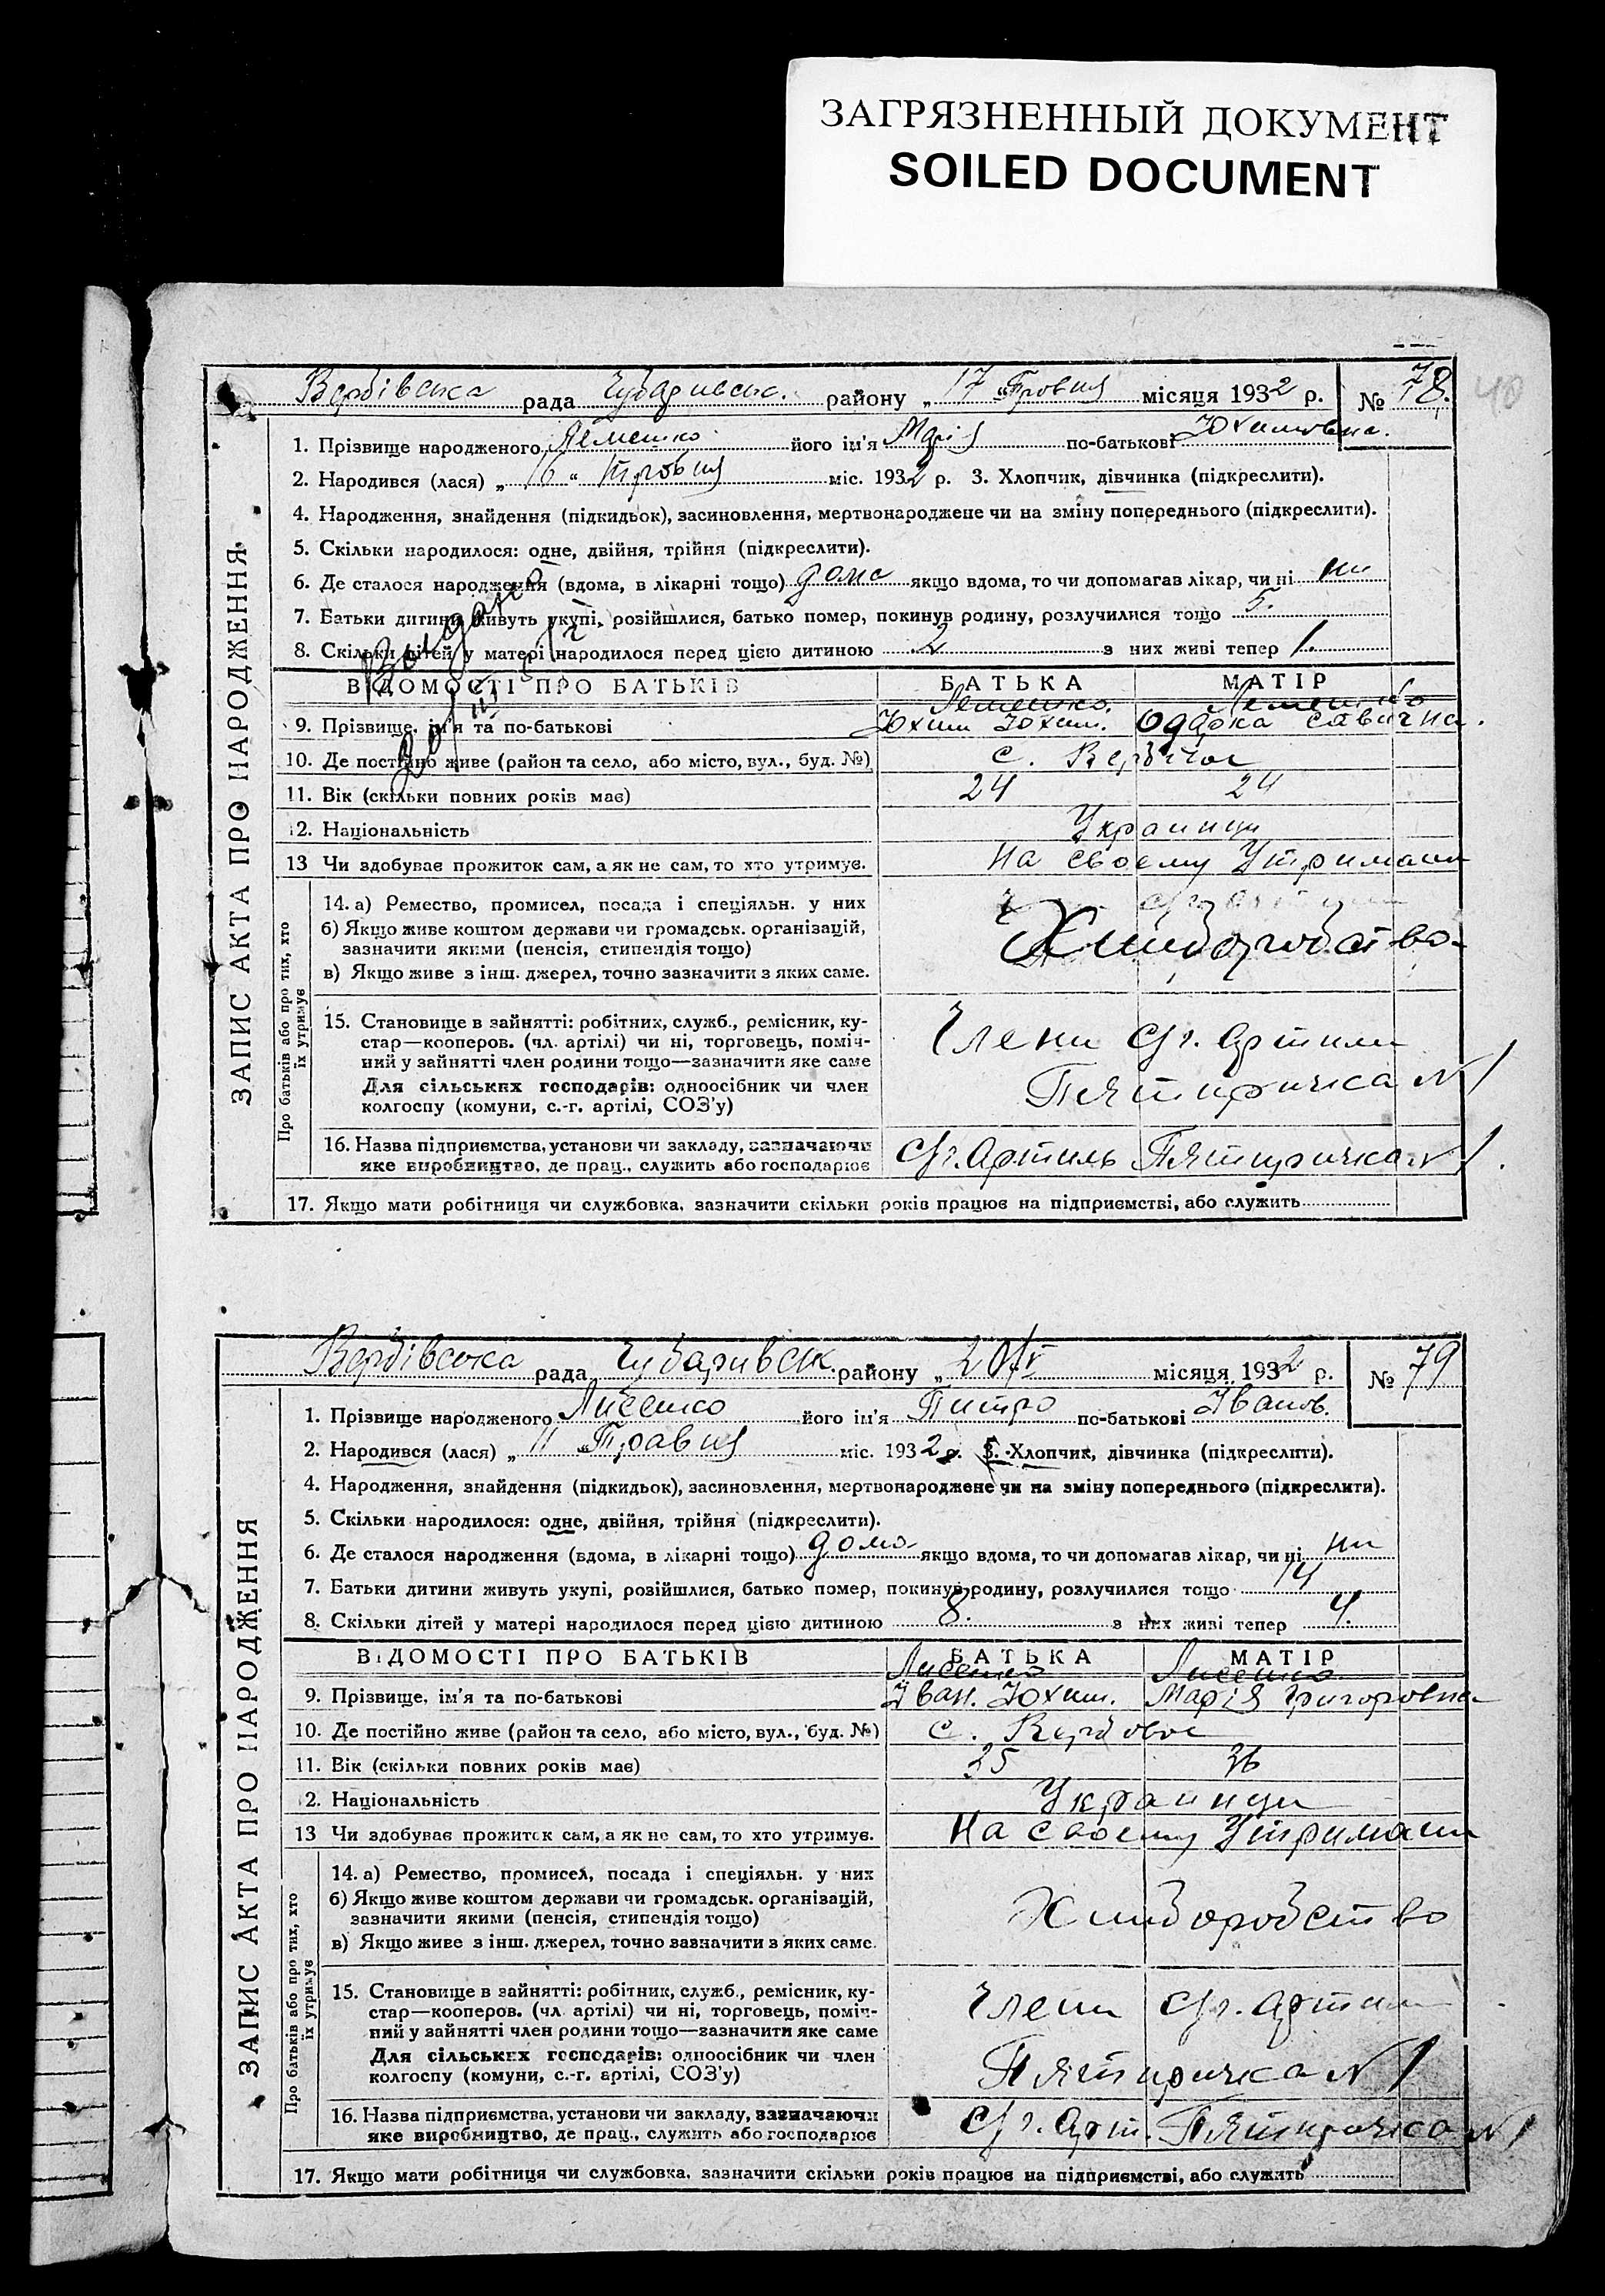 ЗАГРЯЗНЕННЫЙ ДОКУМЕНТ
SOILED DOCUMENT
40
ЗАПИС АКТА ПРО НАРОДЖЕННЯ
Вербівська рада Чубарівськ. району „17 Травня місяця 1932 р. № 78.
1. Прізвище народженого Лемешко його ім'я Марія по-батькові Юхимовна.
2. Народився (лася) „16“ Травня міс. 1932 р. 3. Хлопчик, дівчинка (підкреслити).
4. Народження, знайдення (підкидьок), засиновлення, мертвонароджене чи на зміну попереднього (підкреслити).
5. Скільки народилося: одне, двійня, трійня (підкреслити).
6. Де сталося народження (вдома, в лікарні тощо) дома якщо вдома, то чи допомагав лікар, чи ні ни
7. Батьки дитини живуть укупі, розійшлися, батько помер, покинув родину, розлучилися тощо 5.
8. Скільки дітей у матері народилося перед цією дитиною 2 з них живі тепер 1.
ВІДОМОСТІ ПРО БАТЬКІВ БАТЬКА МАТІР
Лемешко. Лемешко
9. Прізвище, ім'я та по-батькові Юхим Юхим. Одарка Савична.
10. Де постійно живе (район та село, або місто, вул., буд. №) с. Вербічое
11. Вік (скільки повних років має) 24 24
12. Національність Украинци
13 Чи здобуває прожиток сам, а як не сам, то хто утримує. На своему Утримани
Про батьків або про тих, хто їх утримує
14. а) Ремество, промисел, посада і спеціяльн. у них
б) Якщо живе коштом держави чи громадськ. організацій,
зазначити якими (пенсія, стипендія тощо) Хлиборобство
в) Якщо живе з інш. джерел, точно зазначити з яких саме.
15. Становище в зайнятті: робітник, служб., ремісник, ку-
стар—кооперов. (чл. артілі) чи ні, торговець, поміч- Члени с/г. артили
ний у зайнятті член родини тощо—зазначити яке саме
Для сільських господарів: одноосібник чи член Пятиричка №1
колгоспу (комуни, с.-г. артілі, СОЗ'у)
16. Назва підприємства, установи чи закладу, зазначаючи
яке виробництво, де прац., служить або господарює с/г. Артиль Пятиричка №1.
17. Якщо мати робітниця чи службовка, зазначити скільки років працює на підприємстві, або служить
ЗАПИС АКТА ПРО НАРОДЖЕННЯ
Вербівська рада Чубарівськ. району „20/V місяця 1932 р. № 79
1. Прізвище народженого Лисенко його ім'я Питро по-батькові Іванов.
2. Народився (лася) „11 „Травня міс. 1932 р. 3. Хлопчик, дівчинка (підкреслити).
4. Народження, знайдення (підкидьок), засиновлення, мертвонароджене чи на зміну попереднього (підкреслити).
5. Скільки народилося: одне, двійня, трійня (підкреслити).
6. Де сталося народження (вдома, в лікарні тощо) дома якщо вдома, то чи допомагав лікар, чи ні ни
7. Батьки дитини живуть укупі, розійшлися, батько помер, покинув родину, розлучилися тощо 14
8. Скільки дітей у матері народилося перед цією дитиною 8. з них живі тепер 4.
ВІДОМОСТІ ПРО БАТЬКІВ БАТЬКА МАТІР
Лисенко Лисенко
9. Прізвище, ім'я та по-батькові Іван. Юхим. Марія Григоровна
10. Де постійно живе (район та село, або місто, вул., буд. №) с. Вербовое
11. Вік (скільки повних років має) 35 36
12. Національність Украинци
13 Чи здобуває прожиток сам, а як не сам, то хто утримує. На своему Утримани
Про батьків або про тих, хто їх утримує
14. а) Ремество, промисел, посада і спеціяльн. у них
б) Якщо живе коштом держави чи громадськ. організацій,
зазначити якими (пенсія, стипендія тощо) Хлиборобство
в) Якщо живе з інш. джерел, точно зазначити з яких саме.
15. Становище в зайнятті: робітник, служб., ремісник, ку-
стар—кооперов. (чл. артілі) чи ні, торговець, поміч- Члени с/г. артили
ний у зайнятті член родини тощо—зазначити яке саме
Для сільських господарів: одноосібник чи член Пятиричка №1
колгоспу (комуни, с.-г. артілі, СОЗ'у)
16. Назва підприємства, установи чи закладу, зазначаючи
яке виробництво, де прац., служить або господарює с/г. Арт. Пятиричка №1
17. Якщо мати робітниця чи службовка, зазначити скільки років працює на підприємстві, або служить